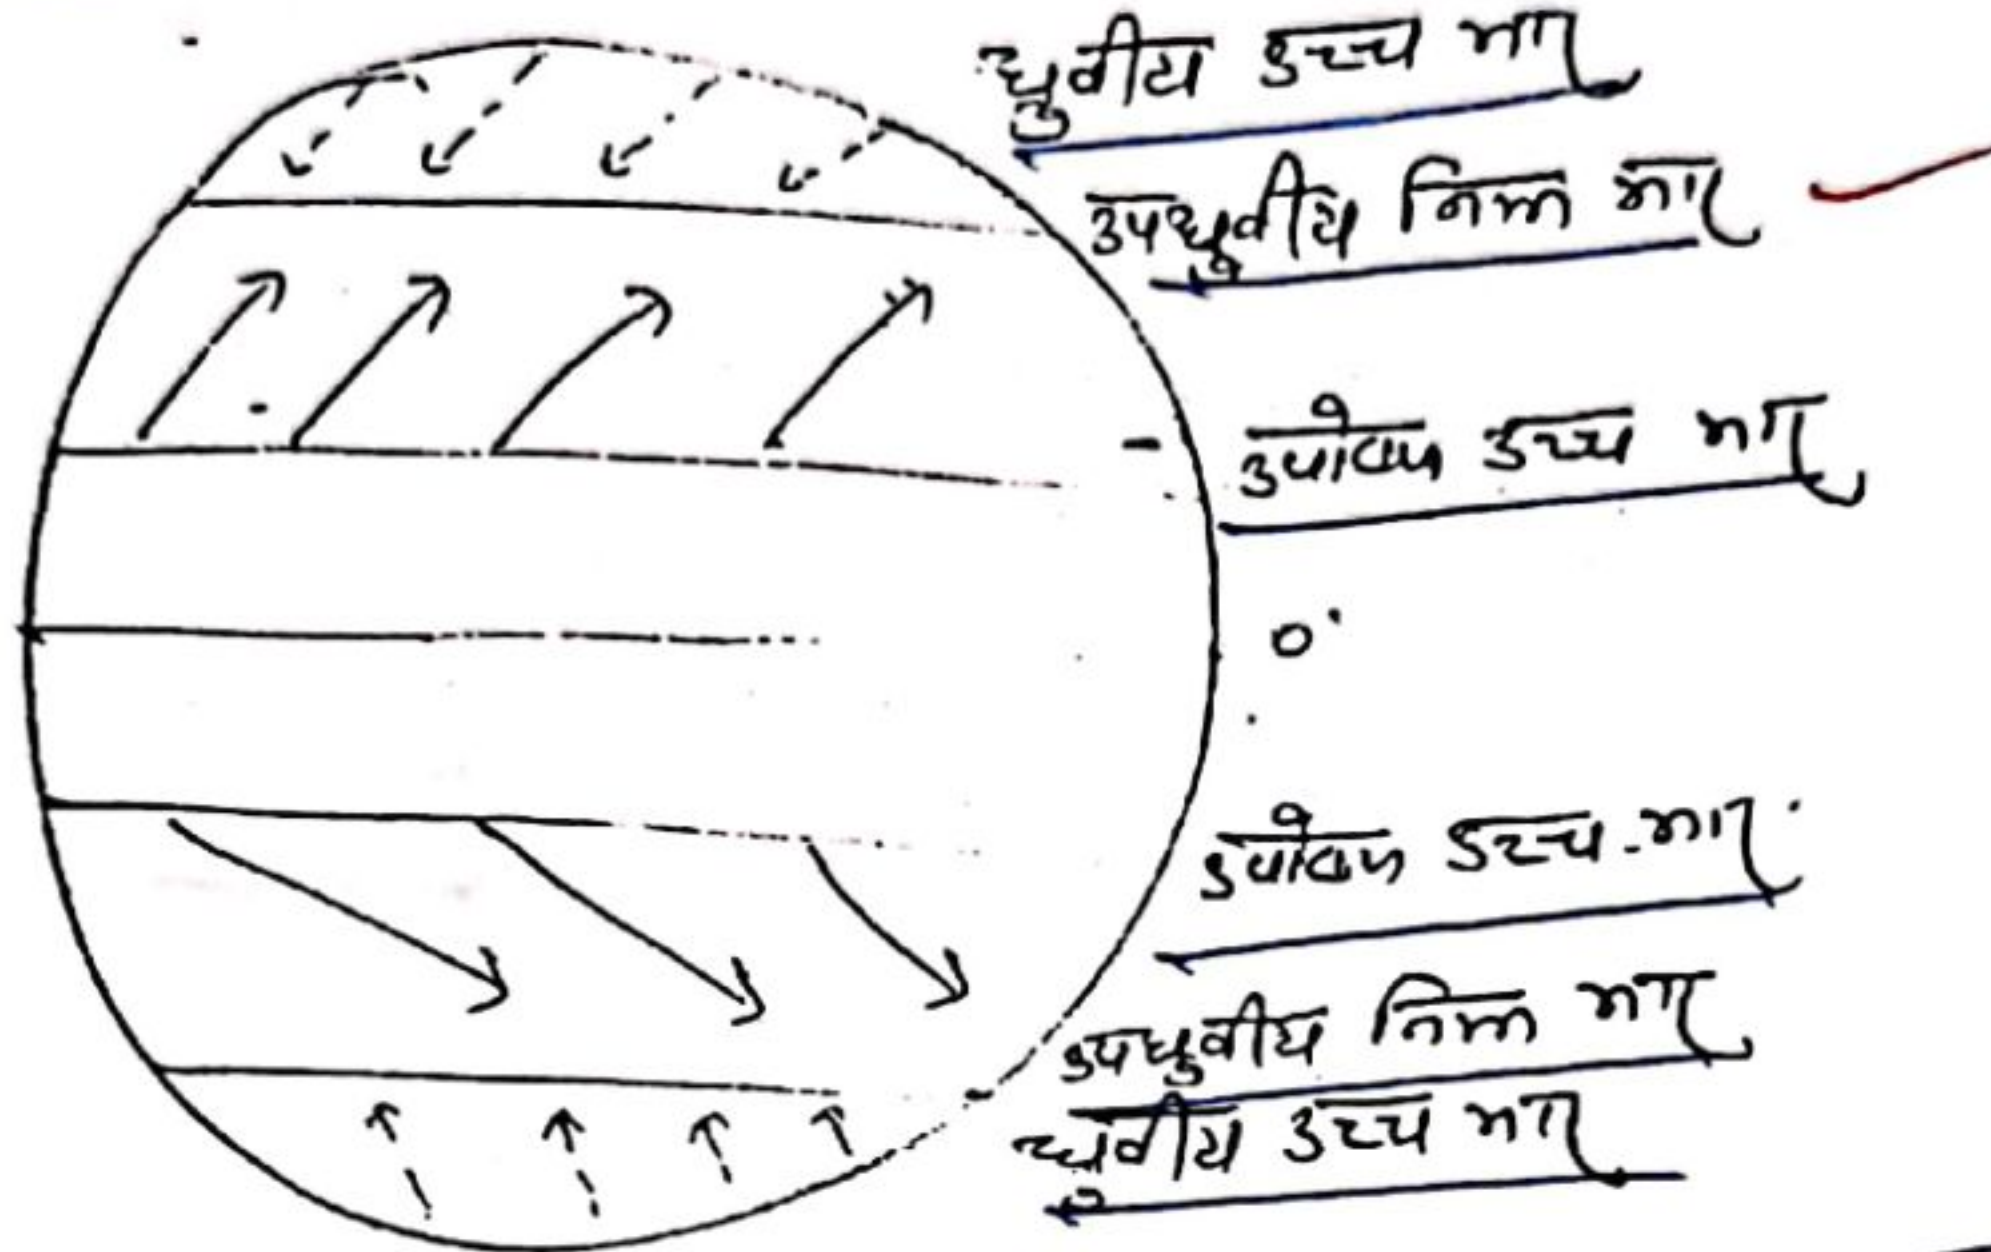 ध्रुवीय उच्च भार
उपध्रुवीय निम्न भार
उपोष्ण उच्च भार
0°
उपोष्ण उच्च भार
उपध्रुवीय निम्न भार
ध्रुवीय उच्च भार